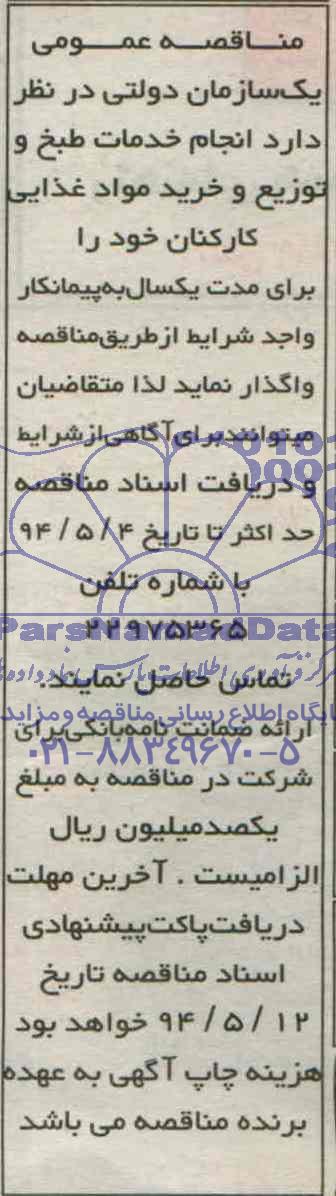 مناقصه عمومی
یک‌سازمان دولتی در نظر
دارد انجام خدمات طبخ و
توزیع و خرید مواد غذایی
کارکنان خود را
برای مدت یکسال‌به‌پیمانکار
واجد شرایط ازطریق‌مناقصه
واگذار نماید لذا متقاضیان
میتوانندبرای‌آگاهی‌ازشرایط
و دریافت اسناد مناقصه
حد اکثر تا تاریخ ۹۴/۵/۴
با شماره تلفن
ParsNamadData
۲۲۹۷۵۳۶۵
تماس حاصل نمایند.
پایگاه اطلاع رسانی مناقصه و مزایده
ارائه ضمانت نامه‌بانکی‌برای
۰۲۱-۸۸۳۴۹۶۷۰-۵
شرکت در مناقصه به مبلغ
یکصدمیلیون ریال
الزامیست . آخرین مهلت
دریافت‌پاکت‌پیشنهادی
اسناد مناقصه تاریخ
۹۴/۵/۱۲ خواهد بود
هزینه چاپ آگهی به عهده
برنده مناقصه می باشد